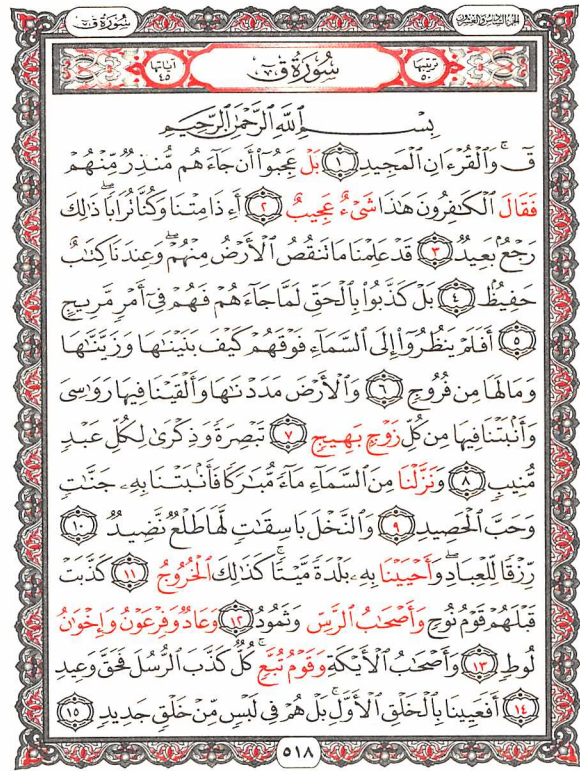 سُورَةُ قٓ
الجزء السادس والعشرون
آياتها ٤٥
سُورَةُ قٓ
ترتيبها ٥٠
بِسْمِ ٱللَّهِ ٱلرَّحْمَٰنِ ٱلرَّحِيمِ
قٓ ۚ وَٱلْقُرْءَانِ ٱلْمَجِيدِ ١ بَلْ عَجِبُوٓا۟ أَن جَآءَهُم مُّنذِرٌ مِّنْهُمْ
فَقَالَ ٱلْكَٰفِرُونَ هَٰذَا شَىْءٌ عَجِيبٌ ٢ أَءِذَا مِتْنَا وَكُنَّا تُرَابًا ۖ ذَٰلِكَ
رَجْعٌۢ بَعِيدٌ ٣ قَدْ عَلِمْنَا مَا تَنقُصُ ٱلْأَرْضُ مِنْهُمْ ۖ وَعِندَنَا كِتَٰبٌ
حَفِيظٌۢ ٤ بَلْ كَذَّبُوا۟ بِٱلْحَقِّ لَمَّا جَآءَهُمْ فَهُمْ فِىٓ أَمْرٍ مَّرِيجٍ
٥ أَفَلَمْ يَنظُرُوٓا۟ إِلَى ٱلسَّمَآءِ فَوْقَهُمْ كَيْفَ بَنَيْنَٰهَا وَزَيَّنَّٰهَا
وَمَا لَهَا مِن فُرُوجٍ ٦ وَٱلْأَرْضَ مَدَدْنَٰهَا وَأَلْقَيْنَا فِيهَا رَوَٰسِىَ
وَأَنۢبَتْنَا فِيهَا مِن كُلِّ زَوْجٍۭ بَهِيجٍ ٧ تَبْصِرَةً وَذِكْرَىٰ لِكُلِّ عَبْدٍ
مُّنِيبٍ ٨ وَنَزَّلْنَا مِنَ ٱلسَّمَآءِ مَآءً مُّبَٰرَكًا فَأَنۢبَتْنَا بِهِۦ جَنَّٰتٍ
وَحَبَّ ٱلْحَصِيدِ ٩ وَٱلنَّخْلَ بَاسِقَٰتٍ لَّهَا طَلْعٌ نَّضِيدٌ ١٠
رِّزْقًا لِّلْعِبَادِ ۖ وَأَحْيَيْنَا بِهِۦ بَلْدَةً مَّيْتًا ۚ كَذَٰلِكَ ٱلْخُرُوجُ ١١ كَذَّبَتْ
قَبْلَهُمْ قَوْمُ نُوحٍ وَأَصْحَٰبُ ٱلرَّسِّ وَثَمُودُ ١٢ وَعَادٌ وَفِرْعَوْنُ وَإِخْوَٰنُ
لُوطٍ ١٣ وَأَصْحَٰبُ ٱلْأَيْكَةِ وَقَوْمُ تُبَّعٍ ۚ كُلٌّ كَذَّبَ ٱلرُّسُلَ فَحَقَّ وَعِيدِ
١٤ أَفَعَيِينَا بِٱلْخَلْقِ ٱلْأَوَّلِ ۚ بَلْ هُمْ فِى لَبْسٍ مِّنْ خَلْقٍ جَدِيدٍ ١٥
٥١٨